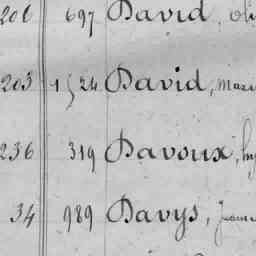 206 697 David,
203 1524 David,
236 319 Davoux,
34 989 Davys,